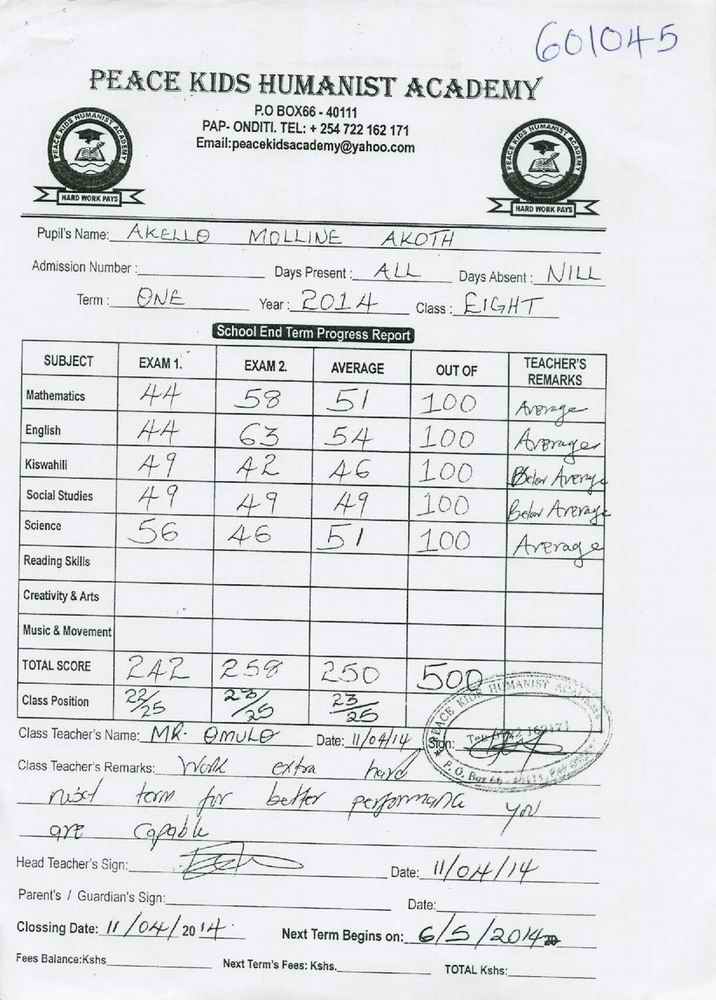 601045
PEACE KIDS HUMANIST ACADEMY
P.O BOX66 - 40111
PAP- ONDITI. TEL: + 254 722 162 171
Email:peacekidsacademy@yahoo.com
PEACE KIDS HUMANIST ACADEMY
HARD WORK PAYS
PEACE KIDS HUMANIST ACADEMY
HARD WORK PAYS
Pupil's Name: AKELLO MOLLINE AKOTH
Admission Number : Days Present : ALL Days Absent : NILL
Term : ONE Year : 2014 Class : EIGHT
School End Term Progress Report
SUBJECT EXAM 1. EXAM 2. AVERAGE OUT OF TEACHER'S REMARKS
Mathematics 44 58 51 100 Average
English 44 63 54 100 Average
Kiswahili 49 42 46 100 Below Average
Social Studies 49 49 49 100 Below Average
Science 56 46 51 100 Average
Reading Skills
Creativity & Arts
Music & Movement
TOTAL SCORE 242 258 250 500
Class Position 22/25 23/25 23/25
Class Teacher's Name: MR. OMULO Date: 11/04/14 Sign:
PEACE KIDS HUMANIST
P. O. Box 66 - 40111
Class Teacher's Remarks: Work extra hard
next term for better performance you
are capable
Head Teacher's Sign: Date: 11/04/14
Parent's / Guardian's Sign: Date:
Clossing Date: 11/04/2014 Next Term Begins on: 6/5/2014
Fees Balance:Kshs Next Term's Fees: Kshs. TOTAL Kshs: